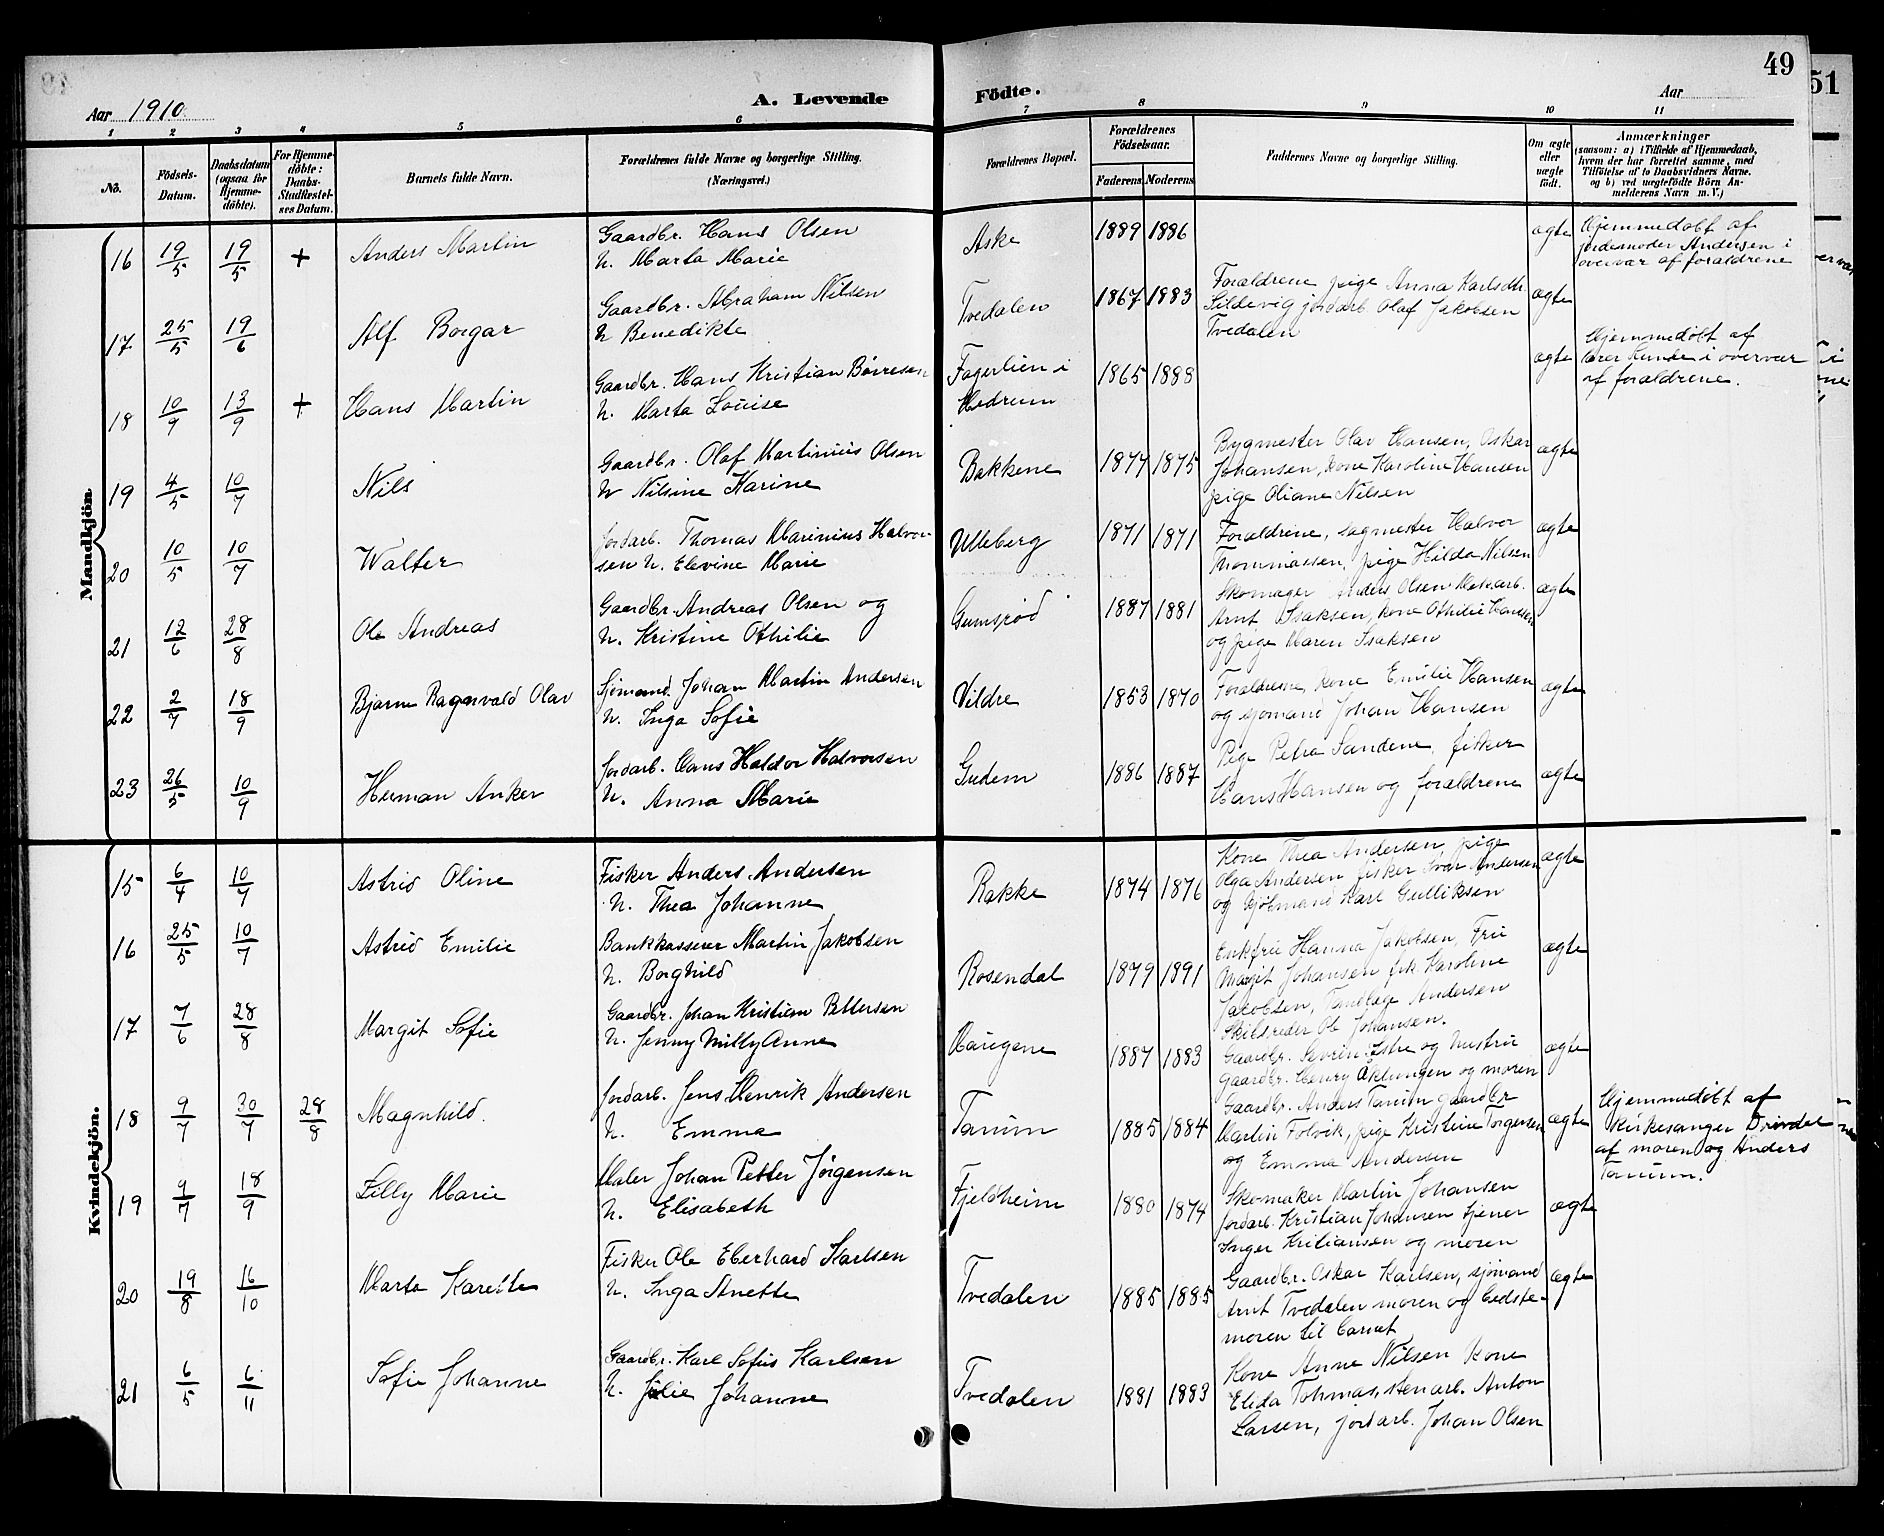 49
51
Aar 1910
A. Levende
Födte.
Aar
1 2 3 4 5 6 7 8 9 10 11
No.
Födsels-
Datum.
Daabsdatum
(ogsaa for
Hjemme-
döbte).
For Hjemme-
döbte:
Daabs-
Stadfæstel-
ses Datum.
Barnets fulde Navn.
Forældrenes fulde Navne og borgerlige Stilling.
(Næringsvei.)
Forældrenes Bopæl.
Forældrenes
Födselsaar.
Faderens Moderens
Faddernes Navne og borgerlige Stilling.
Om ægte
eller
uægte
födt.
Anmærkninger
(saasom: a) i Tilfælde af Hjemmedaab,
hvem der har forrettet samme, med
Tilföielse af to Daabsvidners Navne.
og b) ved uægtefödte Börn An-
melderens Navn m. V.)
Mandkjön
16 19/5 19/5 + Anders Martin
Gaardbr. Hans Olsen
h. Marta Marie
Aske 1889 1886 ægte
Hjemmedøbt af
jordemoder Andersen i
overvær af forældrene
17 25/5 19/6 Alf Borgar
Gaardbr. Abraham Nilsen
h Benedikte
Tvedalen 1867 1883
Forældrene pige Anna Karlsdtr.
Sildevig jordarb. Olaf Jakobsen
Tvedalen
ægte
18 10/9 13/9 + Hans Martin
Gaardbr. Hans Kristian Børresen
h. Marta Louise
Fagerlien i
Hedrum
1865 1888 ægte
Hjemmedøbt af
lærer Lunde i overvær
af forældrene.
19 4/5 10/7 Nils
Gaardbr. Olaf Martinius Olsen
h Nilsine Karine
Bakkene 1877 1875
Bygmester Olav Hansen, Oskar
Johansen, kone Karoline Hansen
pige Oliane Nilsen
ægte
20 10/5 10/7 Walter
Jordarb. Thomas Marinius Halvor-
sen h. Elevine Marie
Ulleberg 1871 1871
Forældrene, sagmester Halvor
Thommassen, pige Hilda Nilsen
ægte
21 12/6 28/8 Ole Andreas
Gaardbr. Andreas Olsen og
h. Kristine Othilie
Gumsrød 1887 1881
Skomager Anders Olsen
Arnt Isaksen, kone Othilie Hansen
og pige Maren Isaksen
ægte
22 2/7 18/9 Bjarne Ragnvald Olav
Sjømand. Johan Martin Andersen
h. Inga Sofie
Vildre 1853 1870
Forældrene, kone Emilie Hansen
og sjømand Johan Hansen
ægte
23 26/5 10/9 Herman Anker
Jordarb. Hans Haldor Halvorsen
h. Anna Marie
Gudem 1886 1887
Pige Petra Sandene, fisker
Hans Hansen og forældrene
ægte
Kvindekjön.
15 6/4 10/7 Astrid Oline
Fisker Anders Andersen
h. Thea Johanne
Rakke 1874 1876
Kone Thea Andersen, pige
Olga Andersen fisker Ivar Andersen
og Karl Gulliksen
ægte
16 25/5 10/7 Astrid Emilie
Bankkasserer Martin Jakobsen
h. Borghild
Rosendal 1879 1891
Enkfru Hanna Jakobsen, Fru
Margit Johansen frk. Karoline
Jakobsen, Tandlæge Andersen
Skibsreder Ole Johansen.
ægte
17 7/6 28/8 Margit Sofie
Gaardbr. Johan Kristian Pettersen
h. Jenny Milly Anne
Haugene 1887 1883
Gaardbr. Severin Istre og hustru
Gaardbr. Henry Aklungen og moren
ægte
18 9/7 30/7 28/8 Magnhild.
Jordarb. Jens Henrik Andersen
h. Emma
Tanum 1885 1884
Gaardbr. Anders Tanum gaardbr
Martin Folvik, pige Kristine Torgersen
og Emma Andersen
ægte
Hjemmedøbt af
kirkesanger
af moren og Anders
Tanum.
19 9/7 18/9 Lilly Marie
Maler Johan Petter Jørgensen
h. Elisabeth
Fjeldheim 1880 1874
Skomaker Martin Johansen
Jordarb. Kristian Johansen tjener
Inger Kritiansen og moren
ægte
20 19/8 16/10 Marta Karette
Fisker Ole Eberhard Karlsen
h. Inga Anette
Tvedalen 1885 1885
Gaardbr. Oskar Karlsen, sjömand
Arnt Tvedalen moren og bedste-
moren til barnet
ægte
21 6/5 6/11 Sofie Johanne
Gaardbr. Karl Sofus Karlsen
h. Julie Johanne
Tvedalen 1881 1883
Kone Anne Nilsen Kone
Elida Tohmas, stenarb. Anton
Larsen, jordarb. Johan Olsen